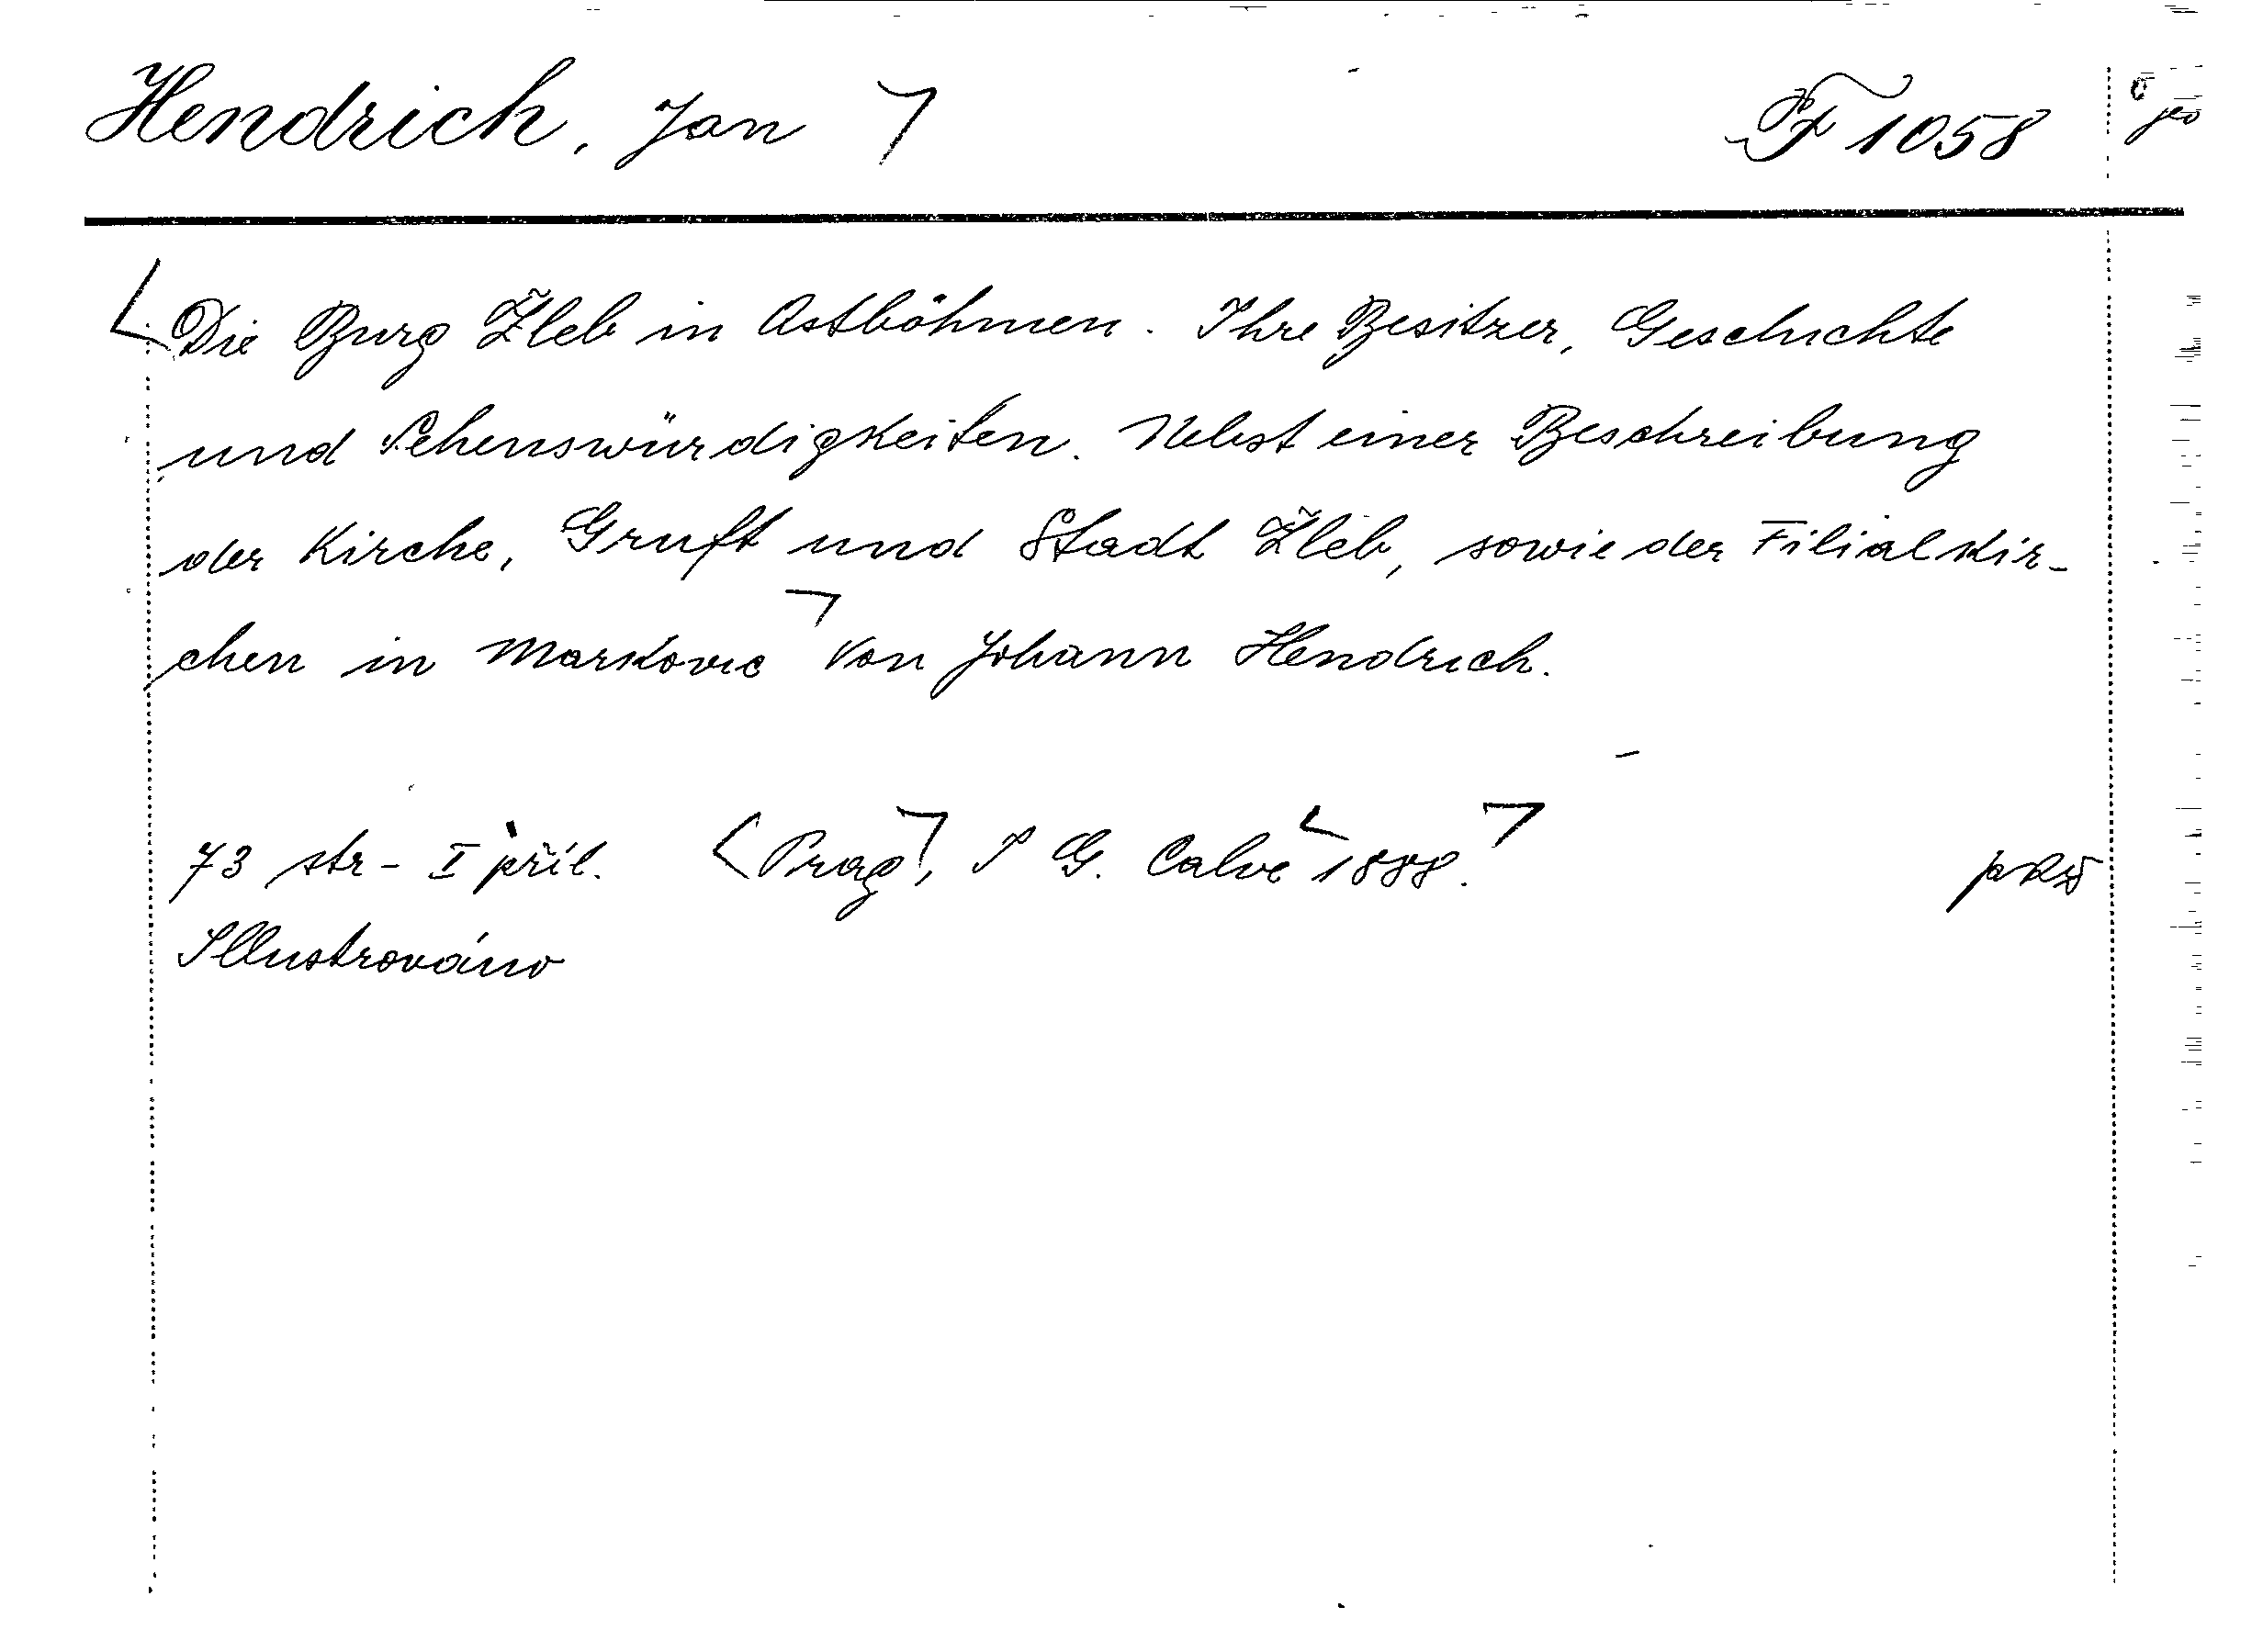 Hendrich, Jan F 1058
Die Burg Žleb in Ostböhmen. Ihre Besitzer, Geschichte
und Sehenswürdigkeiten. Nebst einer Beschreibung
der Kirche, Gruft und Stadt Žleb, sowie der Filialkir-
chen in Markovic von Johann Hendrich.
73 str - I příl. Prag, J G. Calve 1888.
Illustrováno